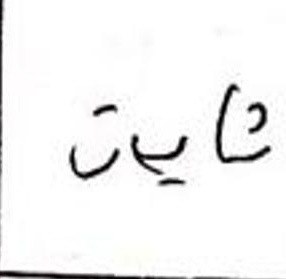 ثابت